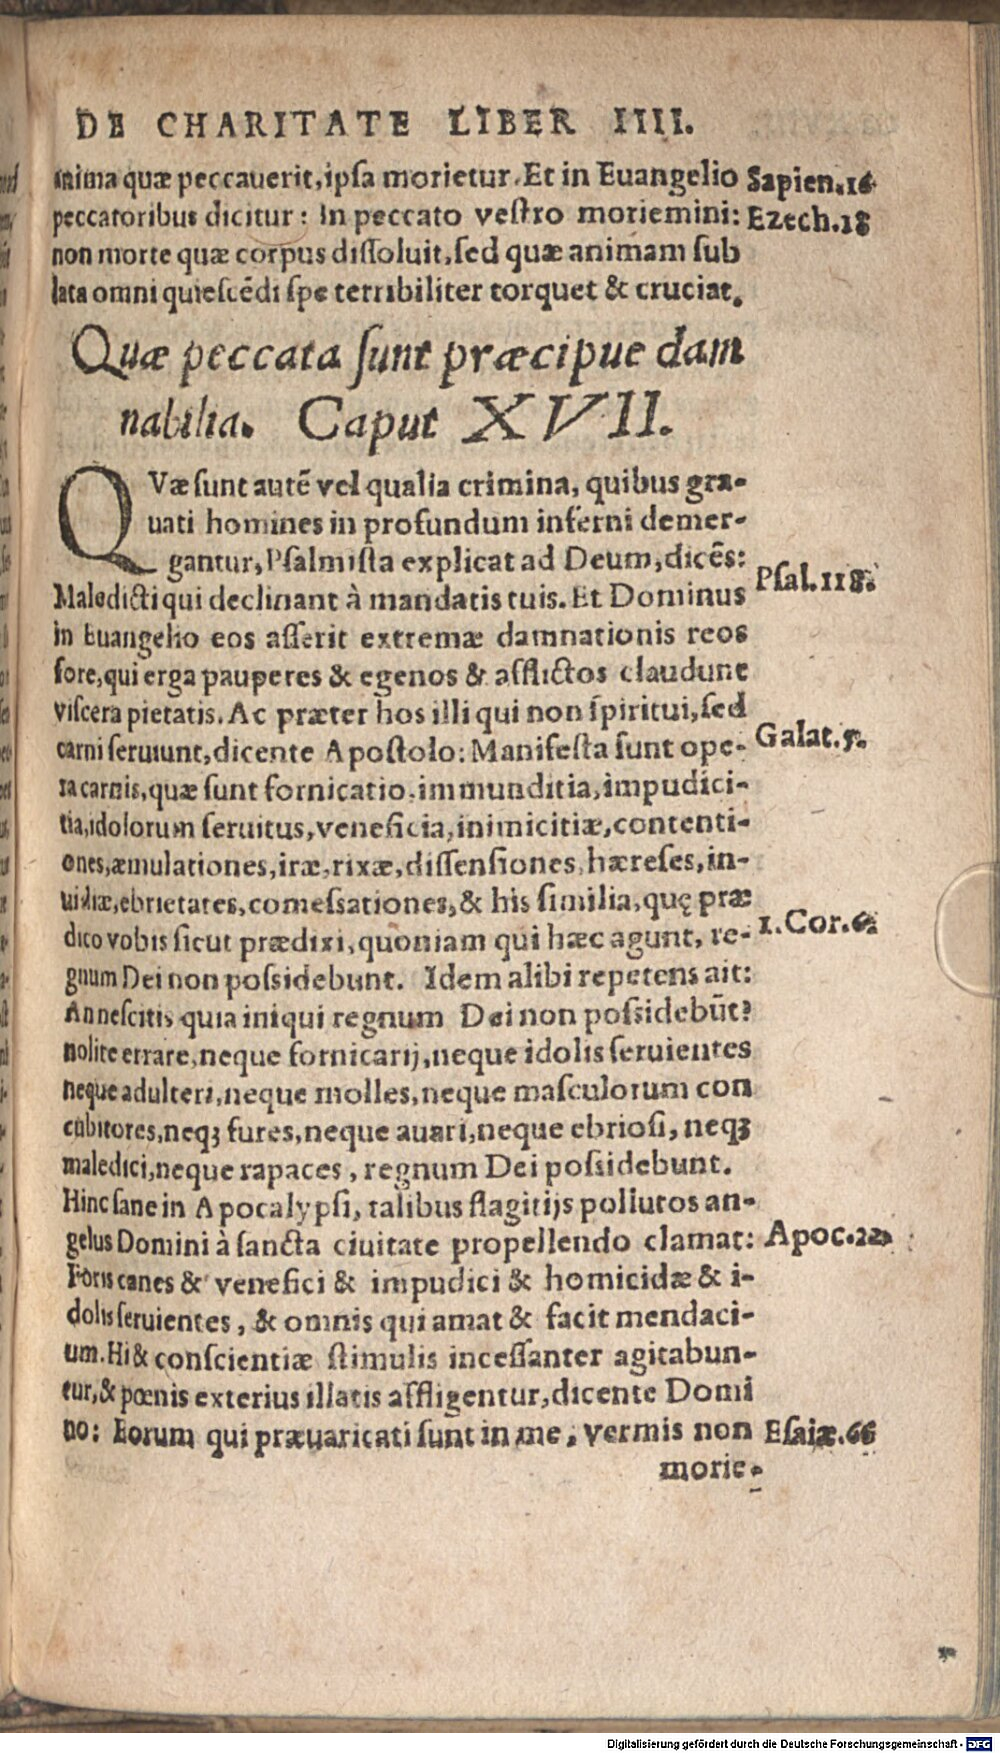 DE CHARITATE LIBER IIII.
anima quæ peccauerit, ipsa morietur. Et in Euangelio Sapien.16
peccatoribus dicitur: In peccato vestro moriemini: Ezech.18
non morte quæ corpus dissoluit, sed quæ animam sub
lata omni quiescẽdi spe terribiliter torquet & cruciat.
Quæ peccata sunt præcipue dam
nabilia. Caput XVII.
QVæ sunt autẽ vel qualia crimina, quibus gra-
uati homines in profundum inferni demer-
gantur, Psalmista explicat ad Deum, dicẽs:
Psal.118.
Maledicti qui declinant à mandatis tuis. Et Dominus
in Euangelio eos asserit extremæ damnationis reos
fore, qui erga pauperes & egenos & afflictos claudunt
viscera pietatis. Ac præter hos illi qui non spiritui, sed
carni seruiunt, dicente Apostolo: Manifesta sunt ope- Galat.5.
ra carnis, quæ sunt fornicatio, immunditia, impudici-
tia, idolorum seruitus, veneficia, inimicitiæ, contenti-
ones, æmulationes, iræ, rixæ, dissensiones, hæreses, in-
uidiæ, ebrietates, comessationes, & his similia, quę præ
dico vobis sicut prædixi, quoniam qui hæc agunt, re- 1.Cor.6.
gnum Dei non possidebunt. Idem alibi repetens ait:
An nescitis quia iniqui regnum Dei non possidebũt?
nolite errare, neque fornicarij, neque idolis seruientes
neque adulteri, neque molles, neque masculorum con
cubitores, neqʒ fures, neque auari, neque ebriosi, neqʒ
maledici, neque rapaces, regnum Dei possidebunt.
Hinc sane in Apocalypsi, talibus flagitijs pollutos an-
gelus Domini à sancta ciuitate propellendo clamat: Apoc.22.
Foris canes & venefici & impudici & homicidæ & i-
dolis seruientes, & omnis qui amat & facit mendaci-
um. Hi & conscientiæ stimulis incessanter agitabun-
tur, & pœnis exterius illatis affligentur, dicente Domi
no: Eorum qui præuaricati sunt in me, vermis non Esaiæ.66
morie-
Digitalisierung gefördert durch die Deutsche Forschungsgemeinschaft - DFG